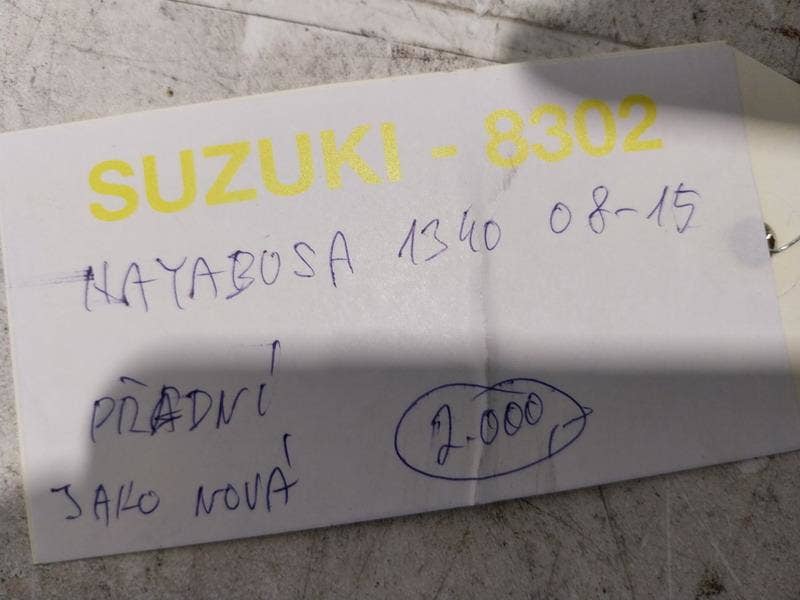 SUZUKI - 8302
HAYABUSA 1340 08-15
PŘEDNÍ
JAKO NOVÁ
2.000,-